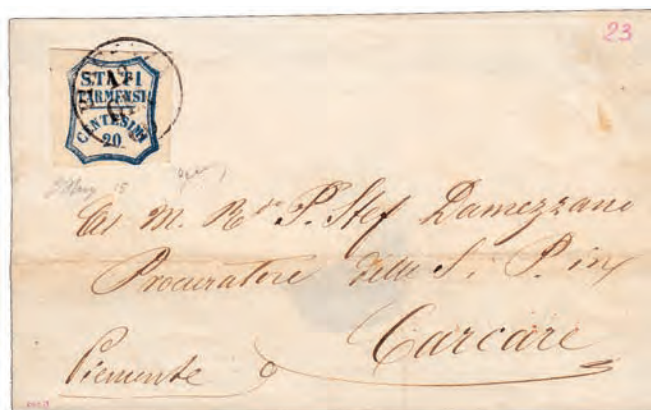 23
STATI
PARMENSI
CENTESIMI
20
Al M. R. P. Stef Damezzano
Procuratore delle S. P. in
Carcare
Piemonte